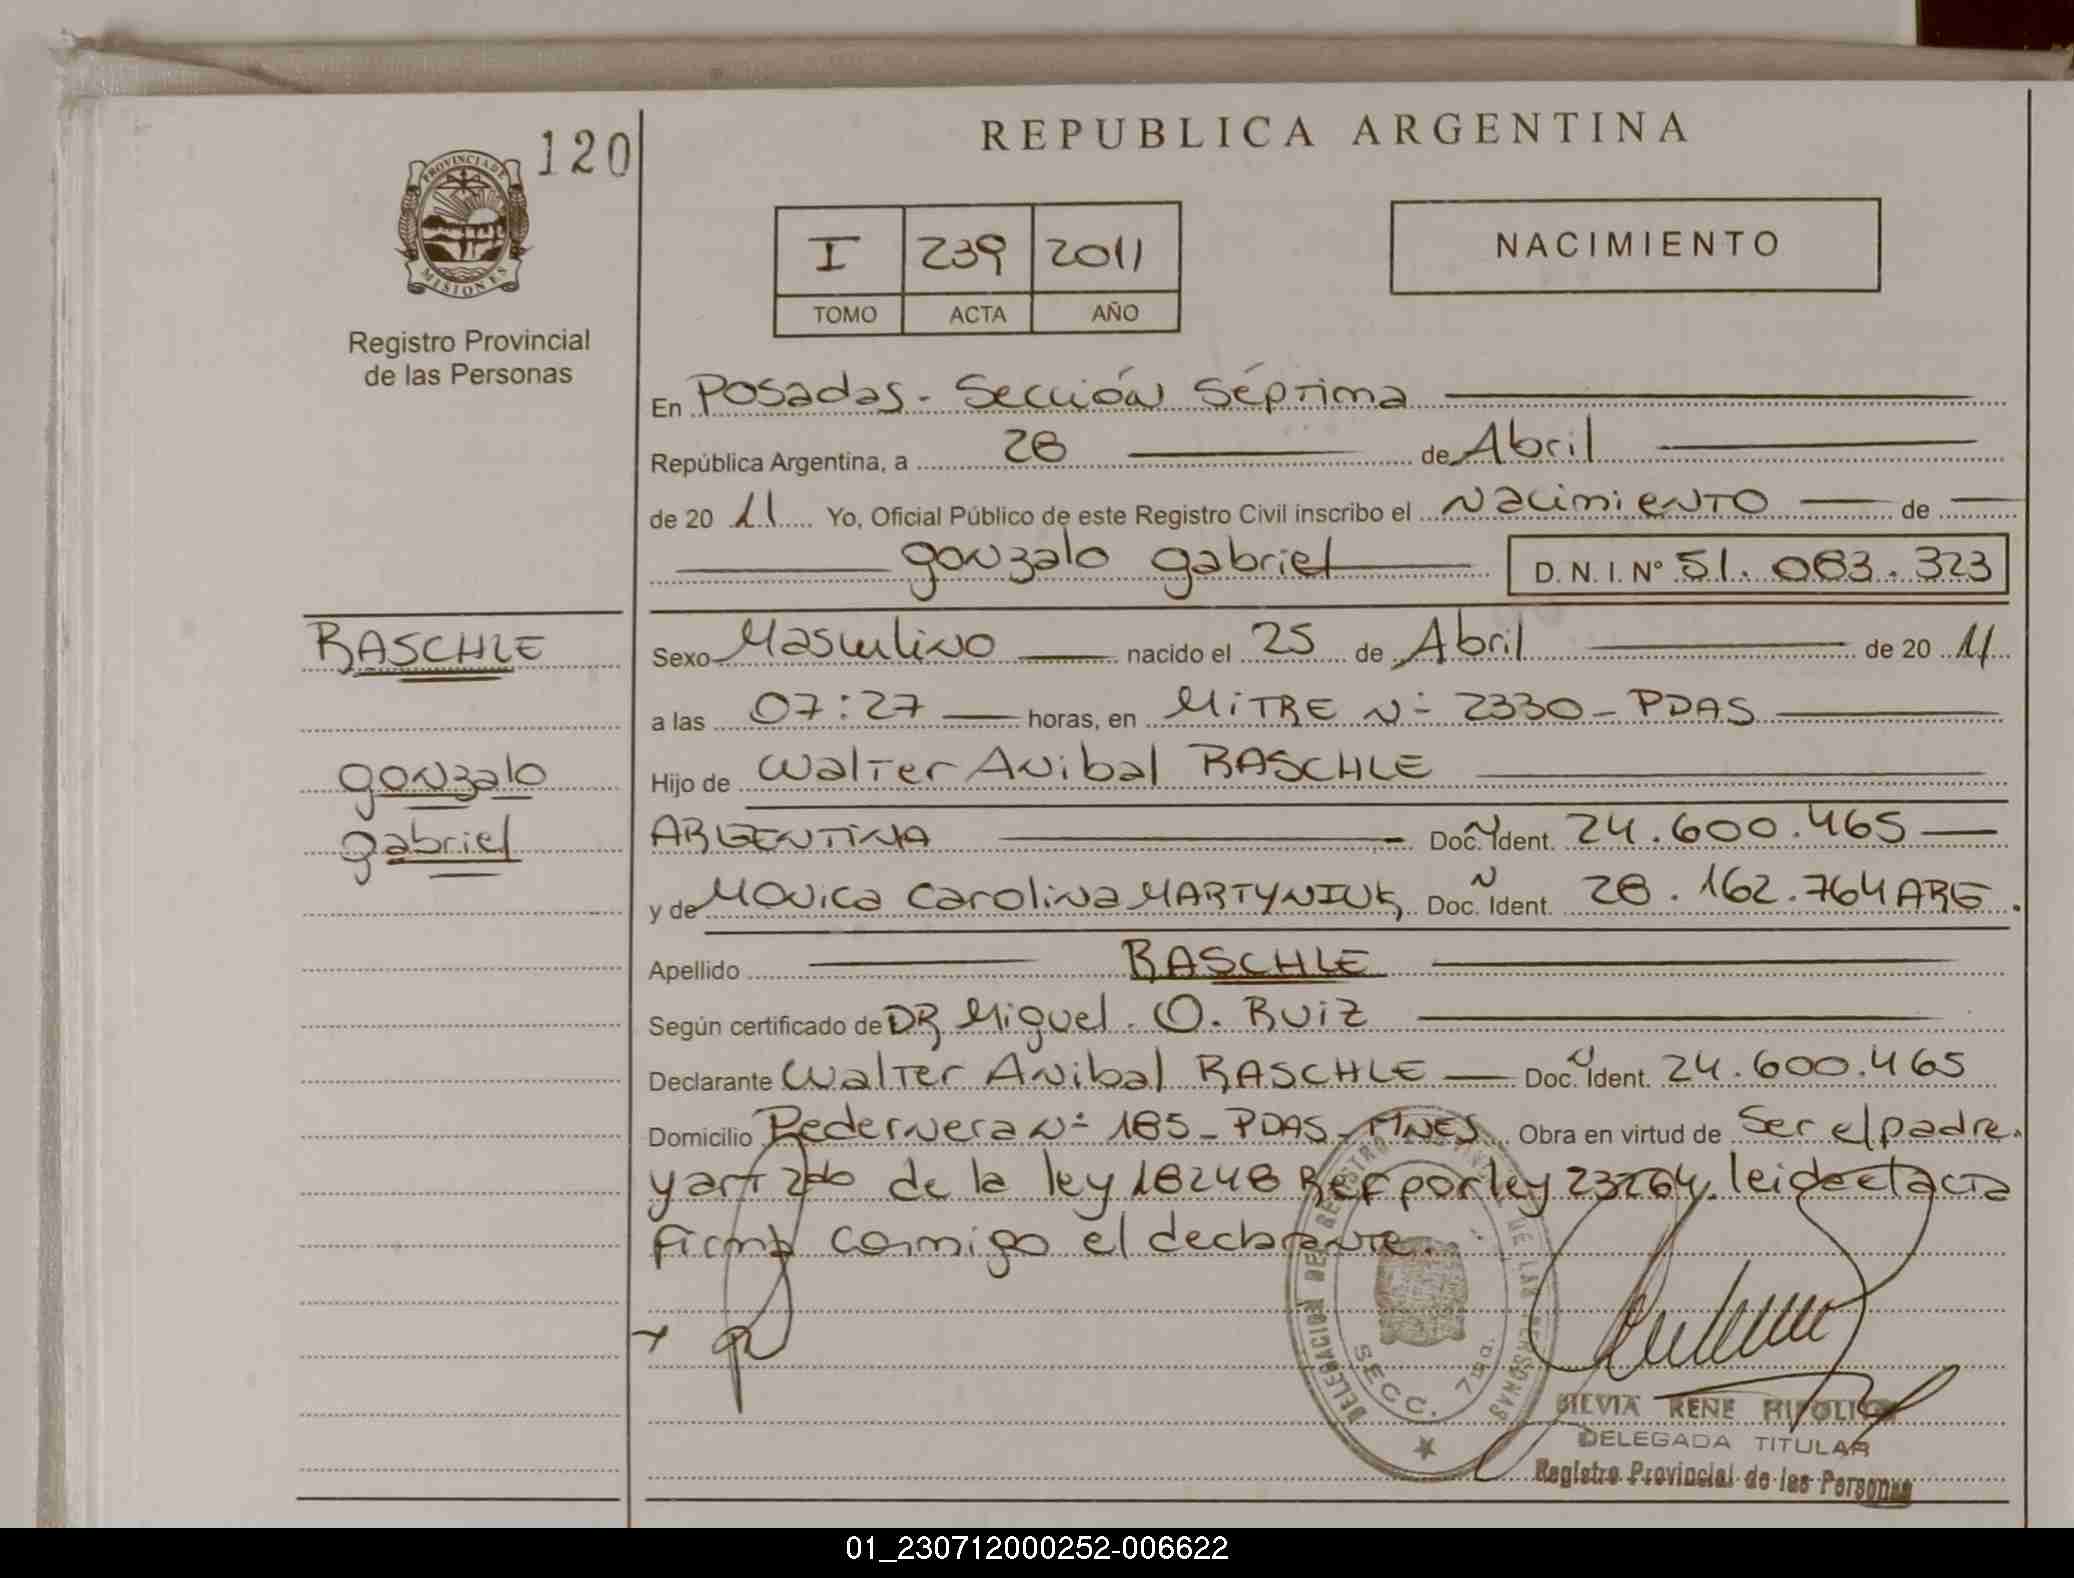 120
PROVINCIA DE
MISIONES
Registro Provincial
de las Personas
REPUBLICA ARGENTINA
I 239 2011
TOMO ACTA AÑO
NACIMIENTO
En Posadas - Sección Séptima
República Argentina, a 28 de Abril
de 2011 Yo, Oficial Público de este Registro Civil inscribo el Nacimiento de
gonzalo gabriel D. N. I. N° 51.083.323
BASCHLE
Sexo Masculino nacido el 25 de Abril de 2011
a las 07:27 horas, en MiTRE N° 2330 - PDAS
gonzalo
Hijo de Walter Anibal BASCHLE
gabriel
ARGENTINA Doc. N Ident. 24.600.465
y de Monica Carolina MARTYNIUK, Doc. N Ident. 28.162.764 ARG.
Apellido BASCHLE
Según certificado de DR Miguel. O. Ruiz
Declarante Walter Anibal BASCHLE Doc. N Ident. 24.600.465
Domicilio Pedernera N° 185 - PDAS - MNES Obra en virtud de Ser el padre.
y art 2do de la ley 18248 Ref por ley 23264. leida el acta
firma conmigo el declarante.
DELEGACION DEL REGISTRO DE LAS PERSONAS
SECC. 7ma.
SILVIA RENE
DELEGADA TITULAR
Registro Provincial de las Personas
01_230712000252-006622